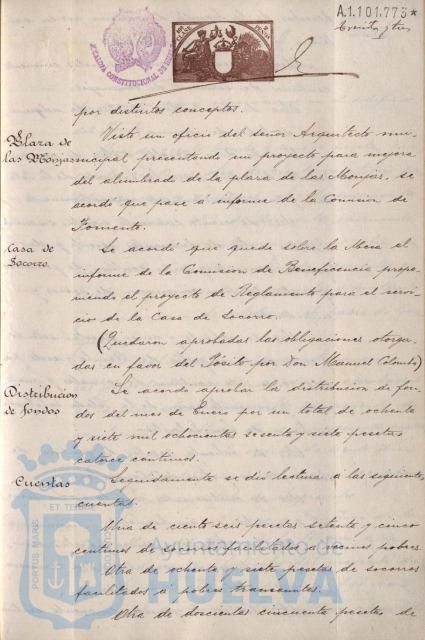 A.1.101.773*
treinta y tres
ALCALDIA CONSTITUCIONAL DE HUELVA
por distintos conceptos.
Plaza de
las Monjas
Visto un oficio del señor Arquitecto mu-
nicipal presentando un proyecto para mejora
del alumbrado de la plaza de las Monjas, se
acordó que pase á informe de la Comision de
Fomento.
Casa de
Socorro.
Se acordó que quede sobre la Mesa el
informe de la Comision de Beneficencia propo-
niendo el proyecto de Reglamento para el servi-
cio de la Casa de Socorro.
(Quedaron aprobadas las obligaciones otorga-
das en favor del Pósito por Don Manuel Colombo)
Distribucion
de fondos
Se acordó aprobar la distribucion de fon-
dos del mes de Enero por un total de ochenta
y siete mil ochocientas sesenta y siete pesetas
catorce céntimos.
Cuentas
Seguidamente se dió lectura á las siguientes
cuentas.
Una de ciento seis pesetas setenta y cinco
centimos de socorros facilitados a vecinos pobres.
Otra de ochenta y siete pesetas de socorros
facilitados á pobres transeuntes.
Otra de doscientas cincuenta pesetas de
PORTUS MARIS
ET TERRAE
Ayuntamiento de
HUELVA